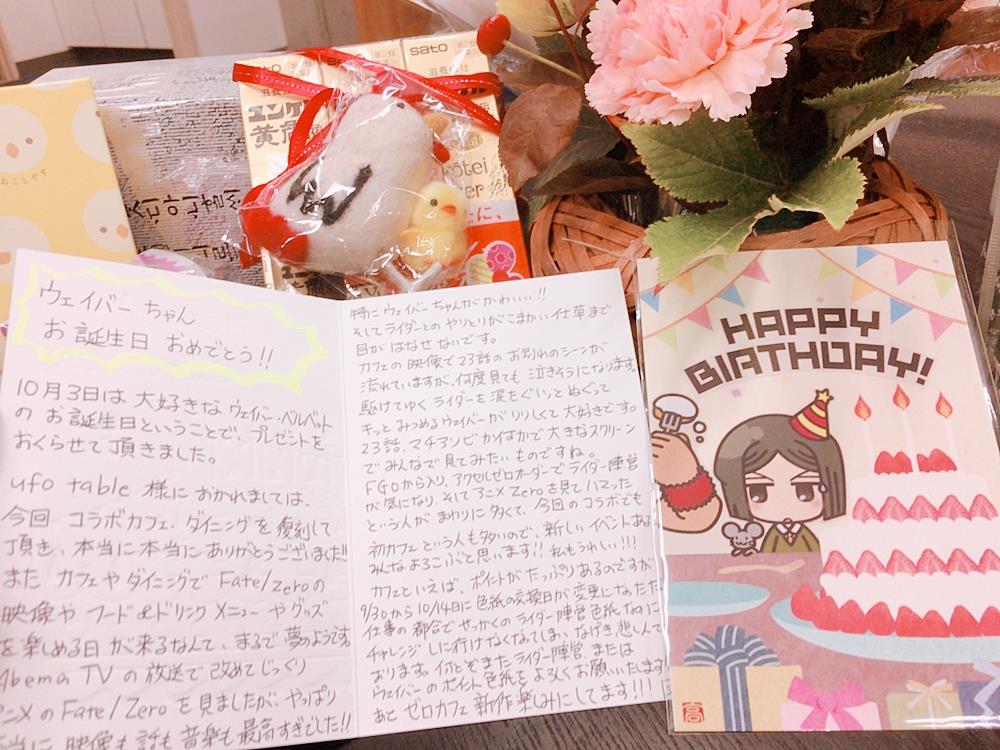 sato
sato
滋養強壮
ユンケル
黄帝
おこしやす
W
ウェイバー ちゃん
お誕生日 おめでとう!!
10月3日は 大好きな ウェイバー・ベルベット
の お誕生日ということで、プレゼントを
おくらせて 頂きました。
ufo table 様に おかれましては、
今回 コラボカフェ・ダイニングを 復刻して
頂き、本当に本当に ありがとうございました!!
また カフェやダイニングで Fate/Zeroの
映像や フード&ドリンク メニューやグッズ
を楽しめる日が来るなんて、まるで夢のようです
Abema TVの放送で改めてじっくり
アニメのFate/Zeroを見ましたが、やっぱり
本当に 映像も話も音楽も最高すぎでした!!
特にウェイバーちゃんがかわいい!!
そしてライダーとの やりとりがこまかい仕草まで
目がはなせないです。
カフェの映像で23話のお別れのシーンが
流れていますが、何度見ても 泣きそうになります。
駆けてゆく ライダーを 涙をぐいっとぬぐって
キッと みつめるウェイバーが りりしくて大好きです。
23話、マチアソビかなにかで大きなスクリーン
でみんなで見てみたいものですね。
FGOから入り、アクセルゼロオーダーでライダー陣営
が気になり、そしてアニメZeroを見てハマった
という人がまわりに多くて、今回のコラボでも
初カフェという人も多いので、新しいイベントあると
みんなよろこぶと思います!! 私もうれしい!!!
カフェといえば、ポイントがたっぷりあるのですが
9/30から10/14日に色紙の交換日が変更になったた
仕事の都合でせっかくのライダー陣営色紙なのに
チャレンジしに行けなくなってしまい、なげき悲しんで
おります。 またライダー陣営 または
ウェイバーのポイント色紙をよろしくお願いたします!
あと ゼロカフェ 新作楽しみにしてます!!!
HAPPY
BIRTHDAY!